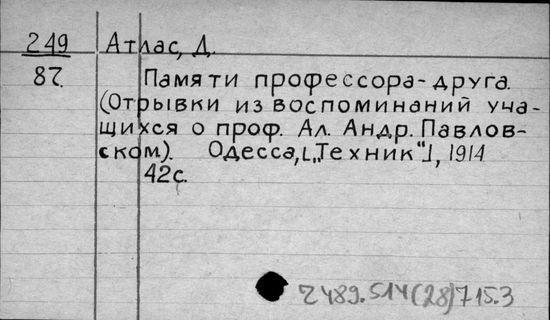 249 Атлас, Д.
87. Памяти профессора-друга.
(Отрывки из воспоминаний уча-
щихся о проф. Ал. Андр. Павлов-
ском). Одесса, [„Техник"], 1914
42с.
2489.514(28)715.3